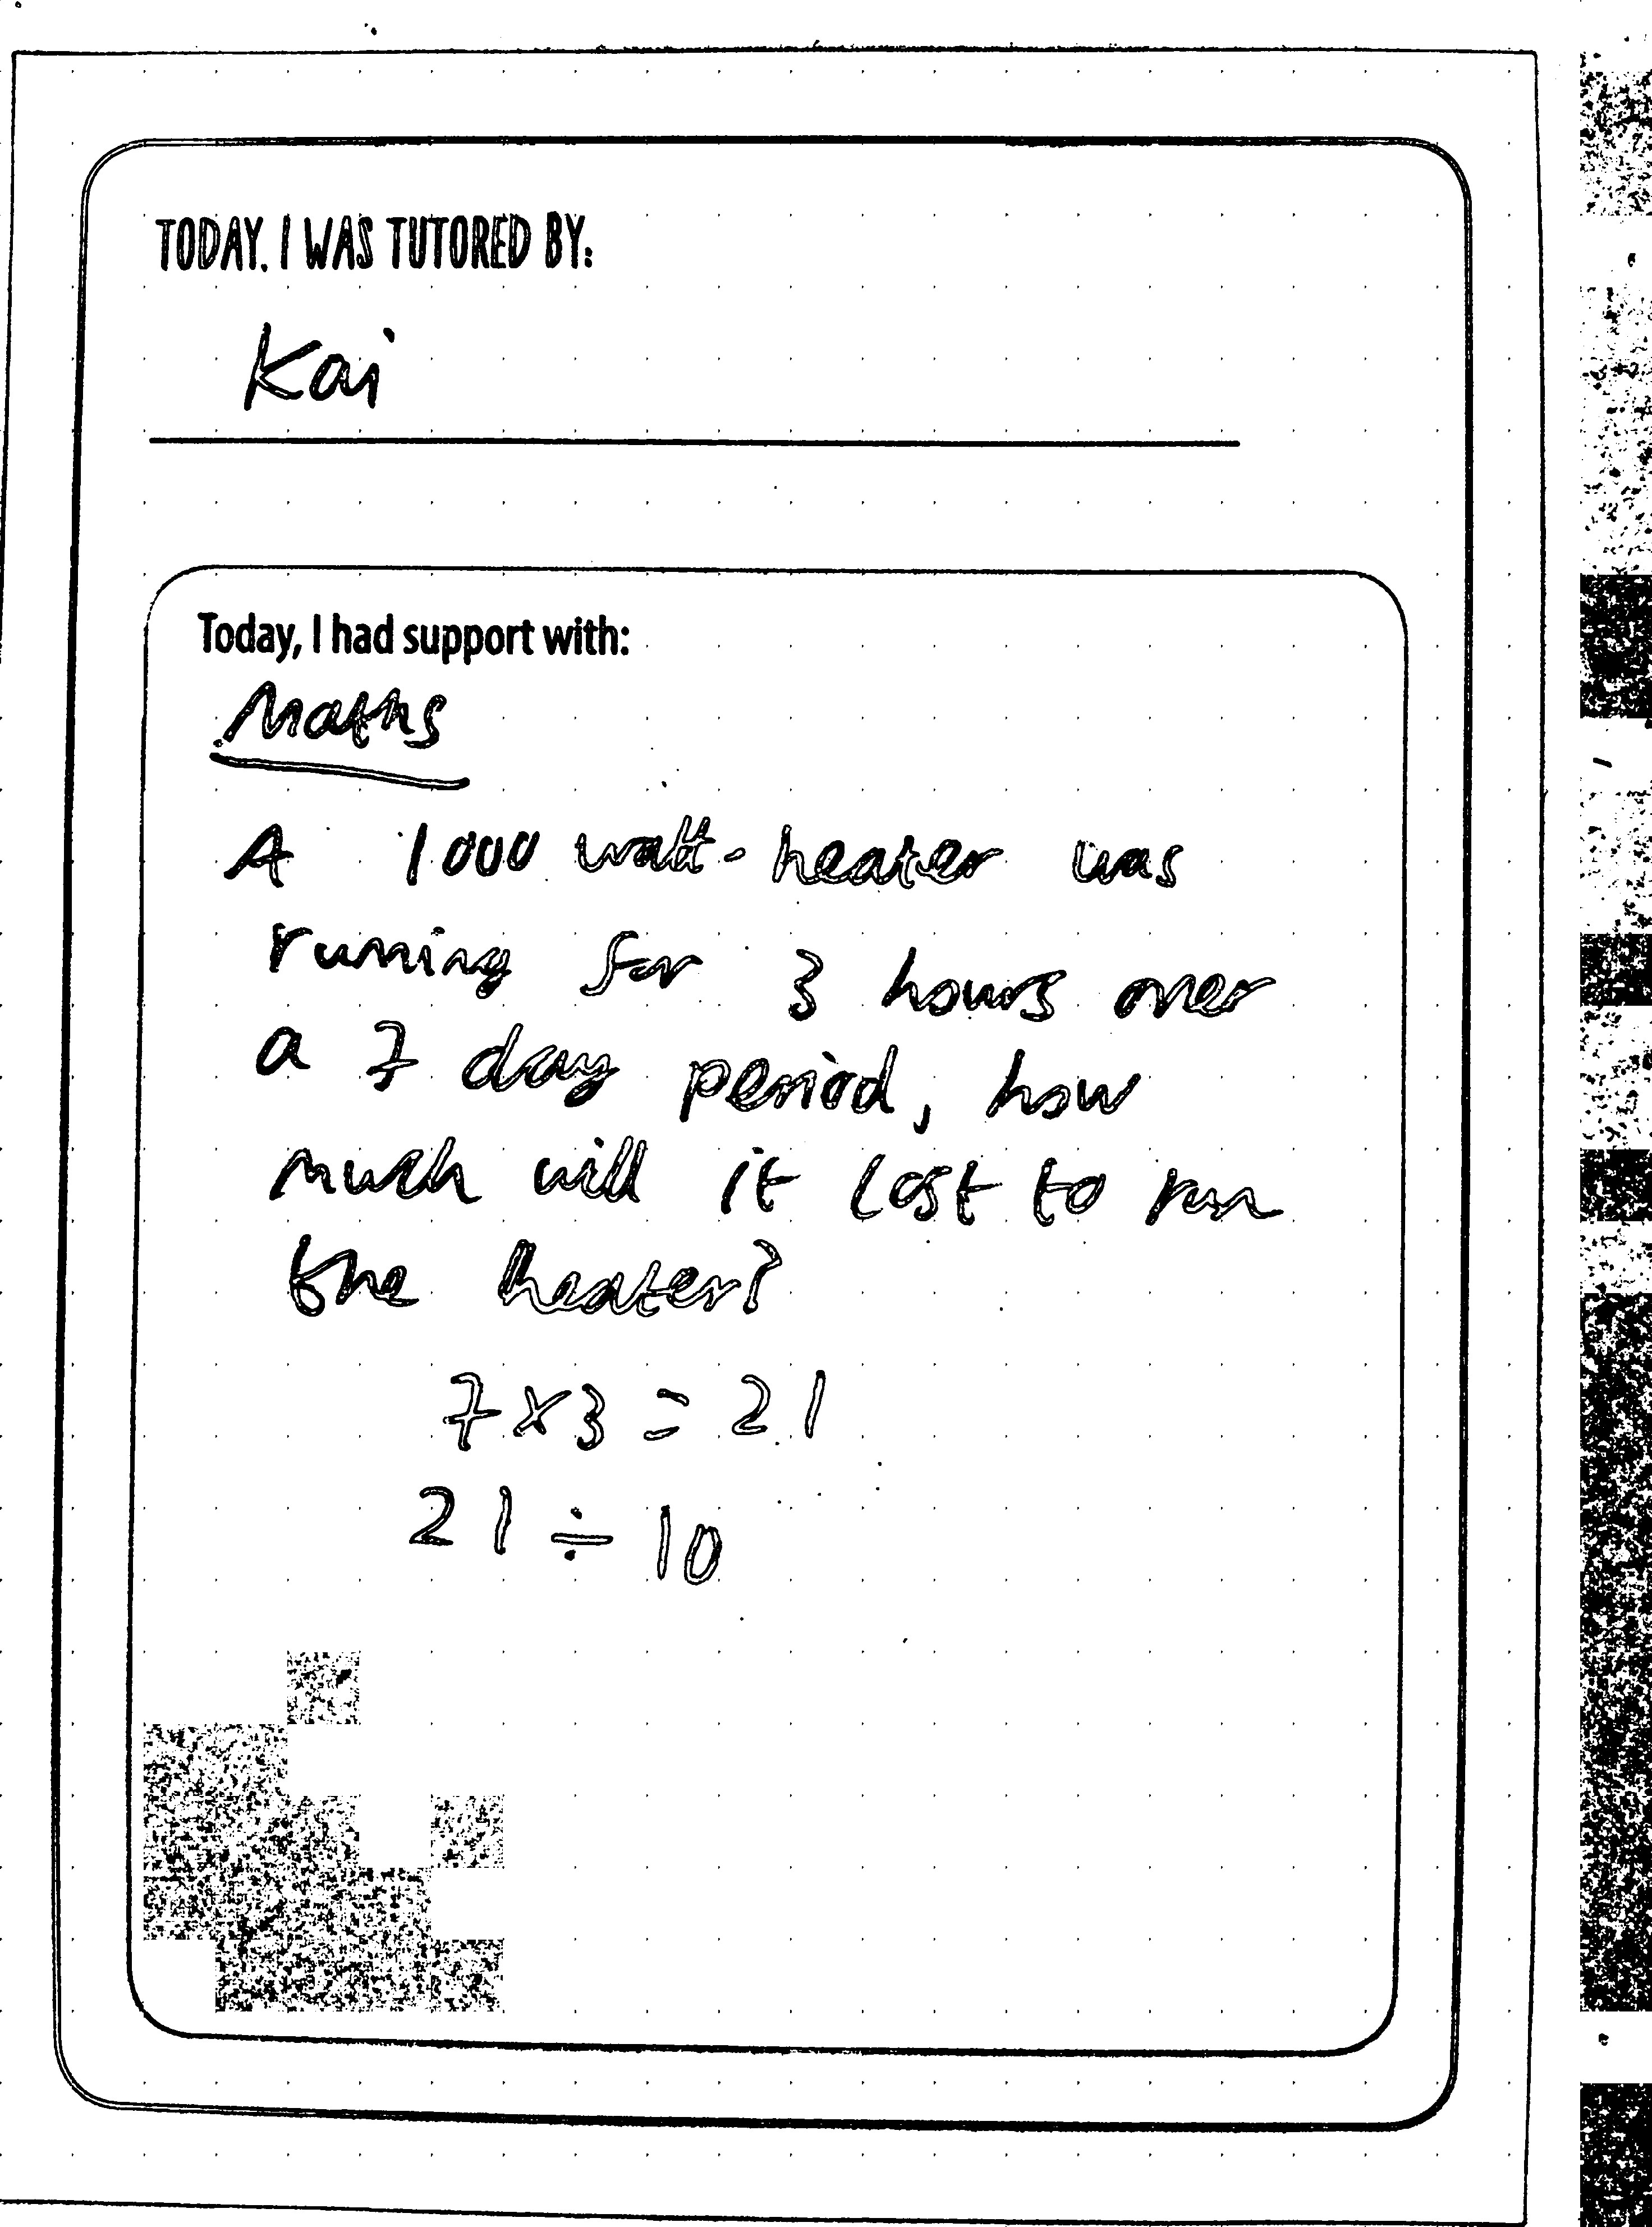 TODAY, I WAS TUTORED BY:
Kai
Today, I had support with:
Maths
A 1000 watt-heater was
running for 3 hours over
a 7 day period, how
much will it cost to run
the heater?
7 × 3 = 21
21 ÷ 10